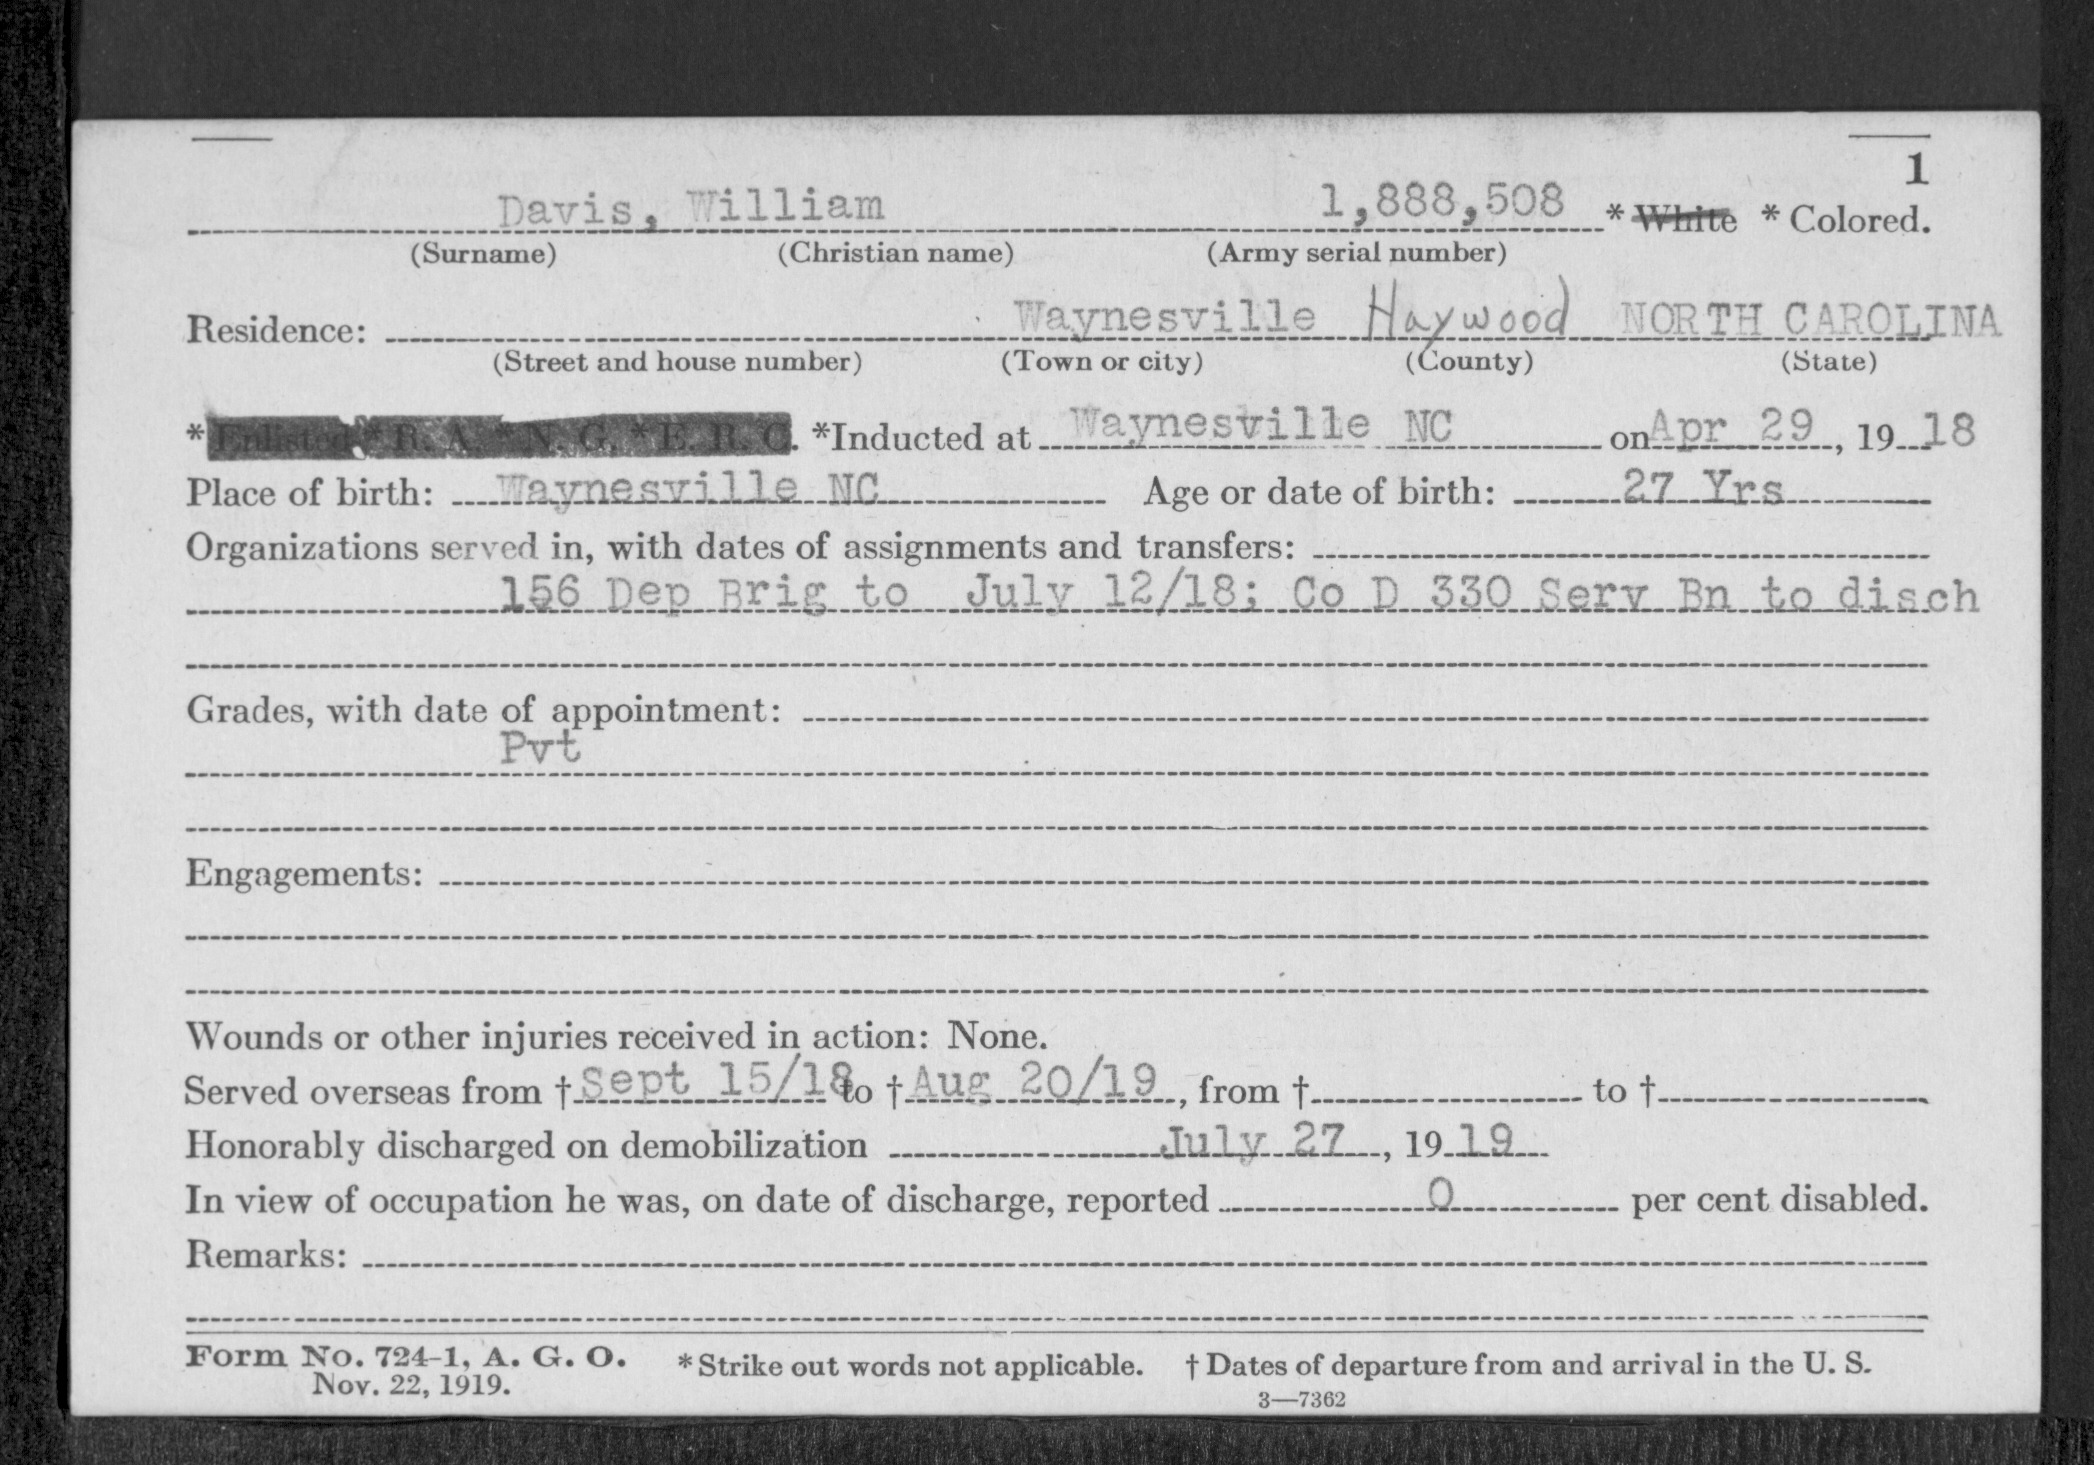 1
Davis, William 1,888,508 * White * Colored.
(Surname) (Christian name) (Army serial number)
Residence: Waynesville Haywood NORTH CAROLINA
(Street and house number) (Town or city) (County) (State)
*Enlisted * R. A. * N. G. * E. R. C. *Inducted at Waynesville NC on Apr 29, 19 18
Place of birth: Waynesville NC Age or date of birth: 27 Yrs
Organizations served in, with dates of assignments and transfers:
156 Dep Brig to July 12/18; Co D 330 Serv Bn to disch
Grades, with date of appointment:
Pvt
Engagements:
Wounds or other injuries received in action: None.
Served overseas from † Sept 15/18 to † Aug 20/19, from † to †
Honorably discharged on demobilization July 27, 19 19
In view of occupation he was, on date of discharge, reported 0 per cent disabled.
Remarks:
Form No. 724-1, A. G. O. * Strike out words not applicable. † Dates of departure from and arrival in the U. S.
Nov. 22, 1919.
3—7362